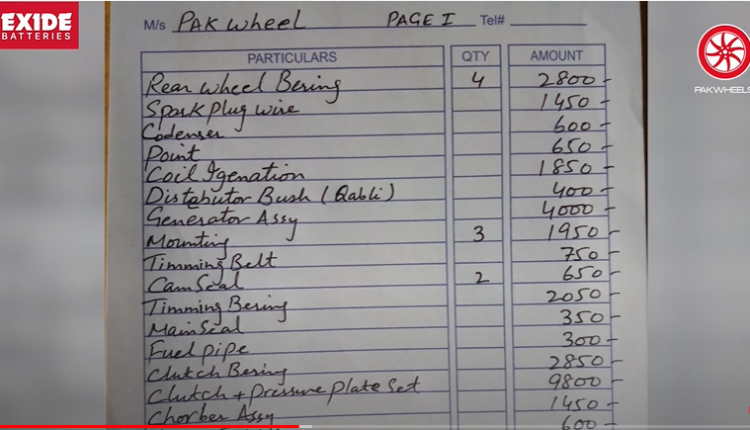 EXIDE
BATTERIES
M/s PAK wheel PAGE I Tel#
PAKWHEELS
PARTICULARS QTY AMOUNT
Rear wheel Bering 4 2800-
Spark Plug wire 1450-
Codenser 600-
Point 650-
Coil Igenation 1850-
Distabutor Bush (Qabli) 400-
Generator Assy 4000-
Mounting 3 1950-
Timming Belt 750-
Cam Seal 2 650-
Timming Bering 2050-
Main Seal 350-
Fuel pipe 300-
Clutch Bering 2850-
Clutch + Pressure Plate Set 9800-
Chorber Assy 1450-
600-